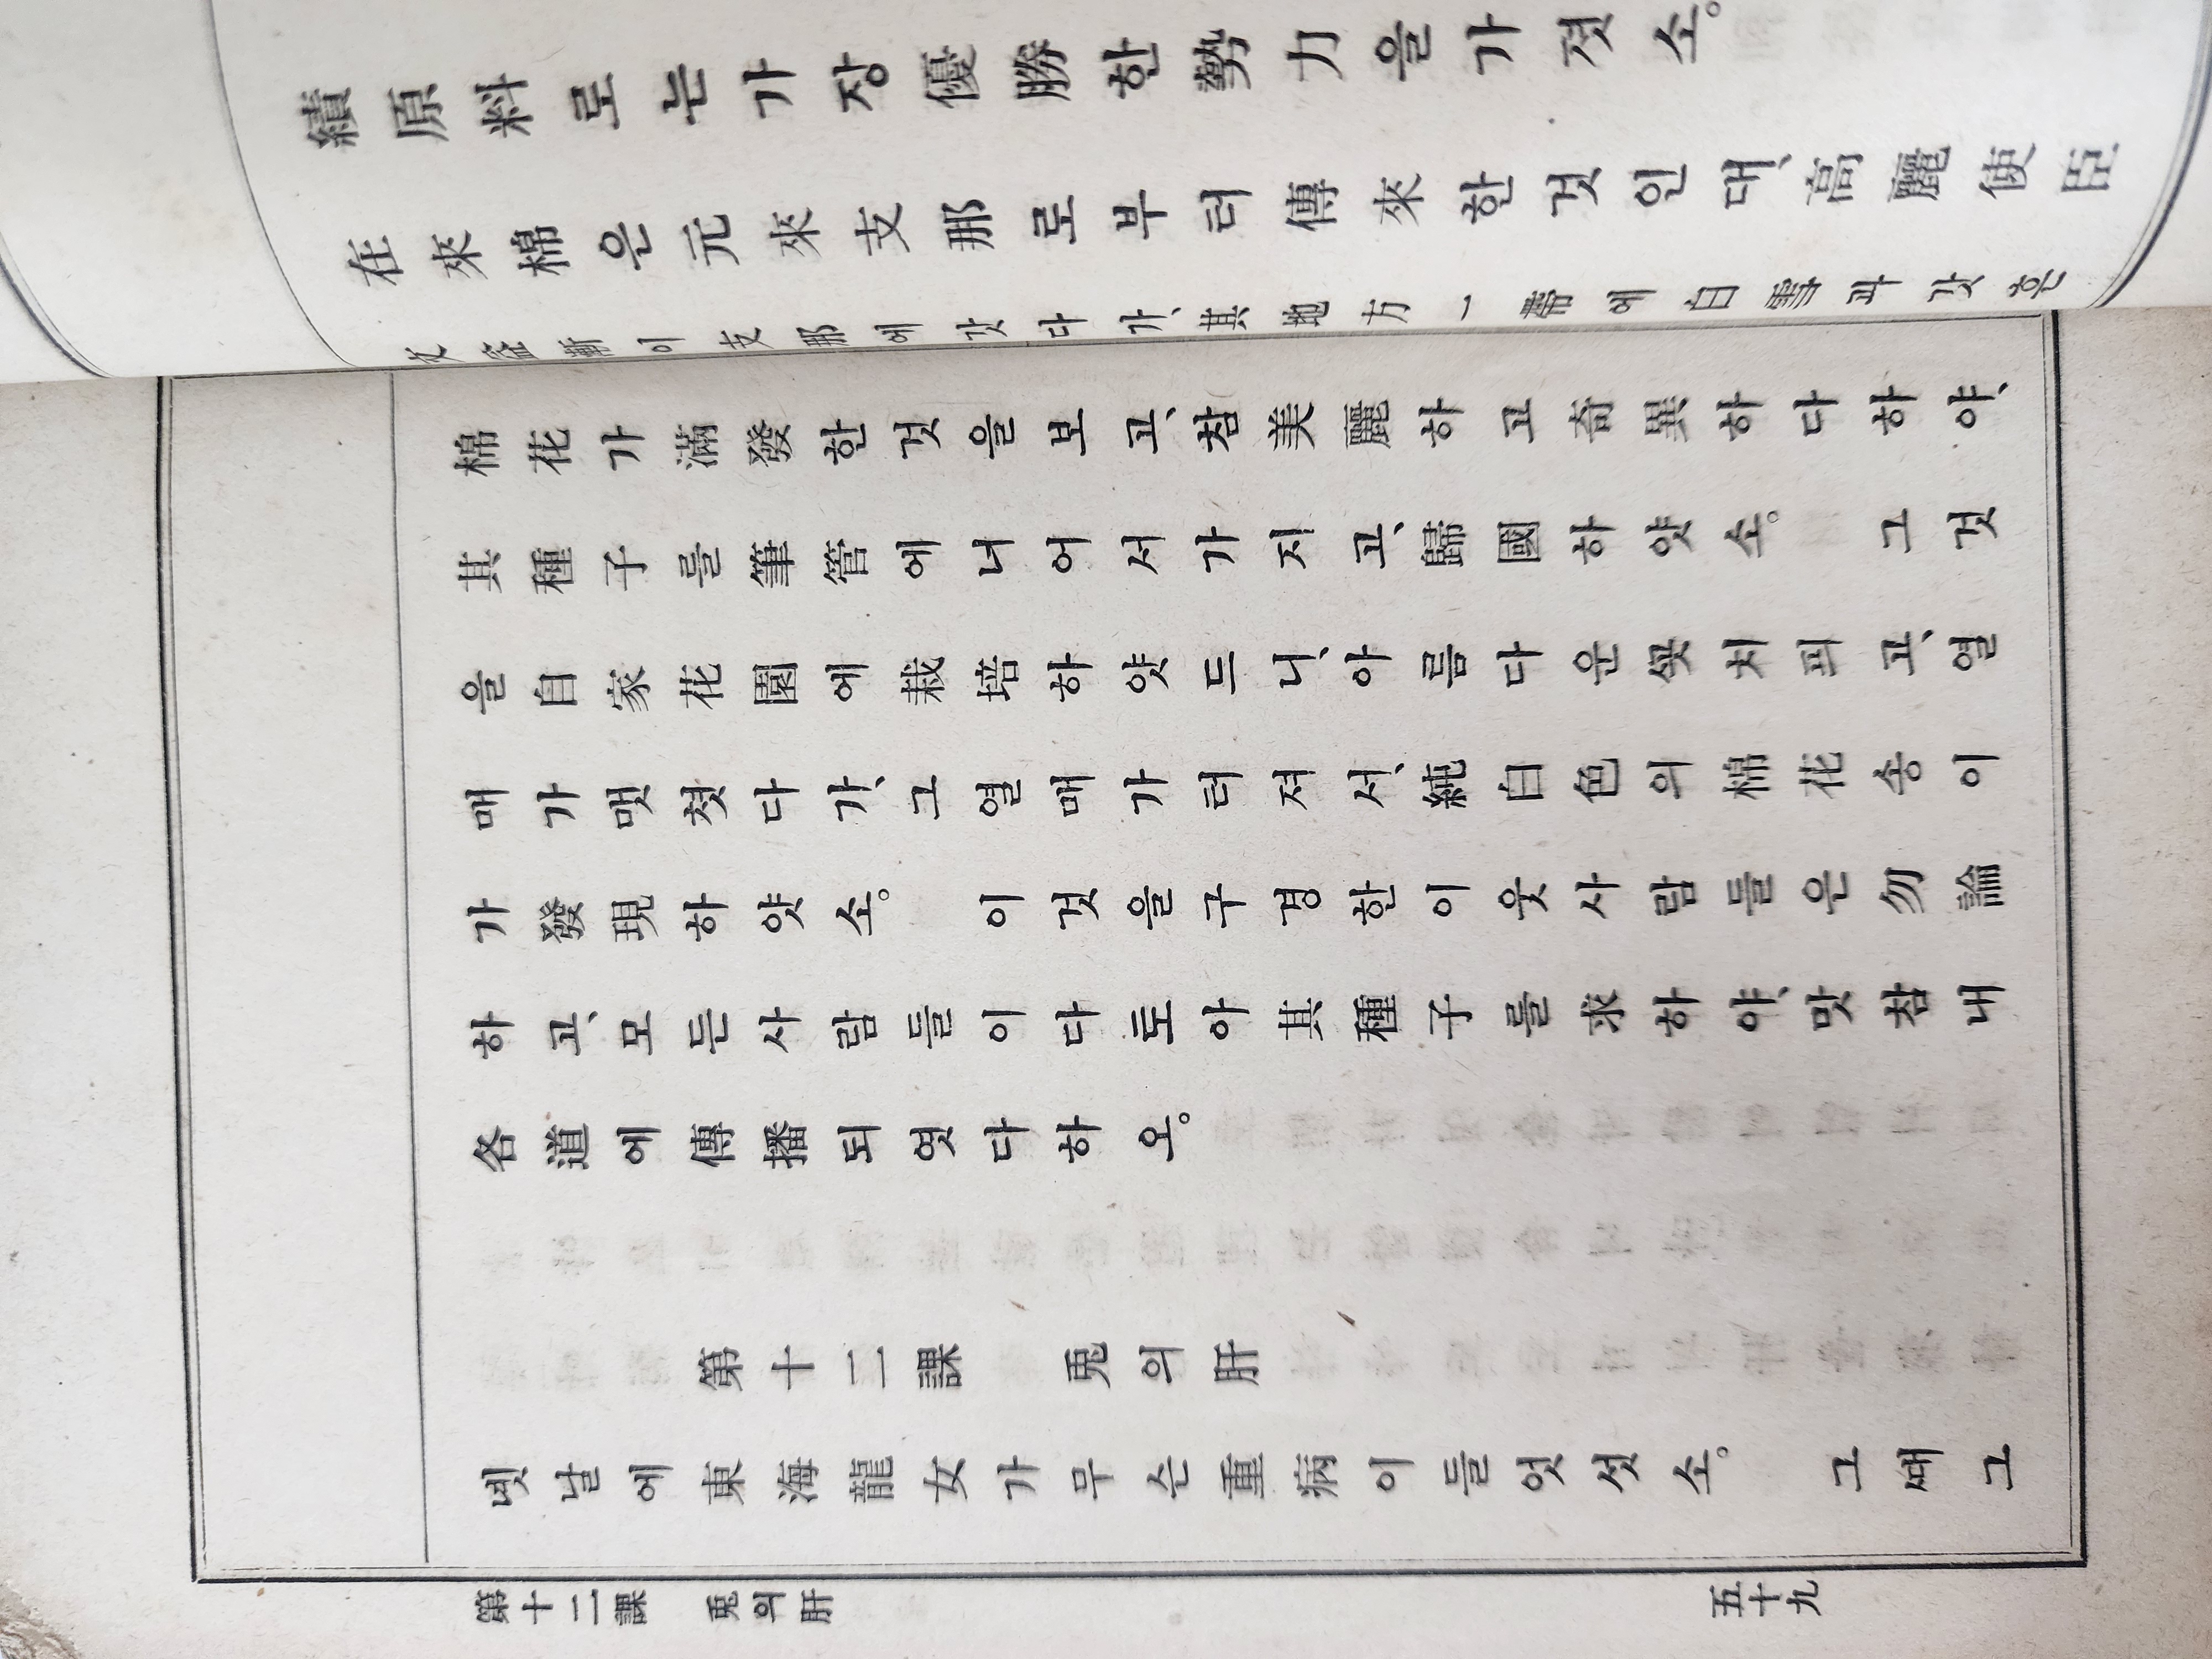 績原料로는가장優勝한勢力을가젓소。
在來棉은元來支那로부터傳來한것인대、高麗使臣
文益漸이支那에갓다가、其地方一帶에白雪과갓흔
棉花가滿發한것을보고、참美麗하고奇異하다하야、
其種子를筆管에너어서가지고、歸國하얏소。 그것
을自家花園에栽培하얏드니、아름다운ᄭᅩᆺ치피고、열
매가맷첫다가、그열매가터져서、純白色의棉花송이
가發現하얏소。 이것을구경한이웃사람들은勿論
하고、모든사람들이다토아其種子를求하야、맛참내
各道에傳播되엿다하오。
第十二課 兎의肝
녯날에東海龍女가무슨重病이들엇섯소。 그ᄯᅢ그
第十二課 兎의肝
五十九